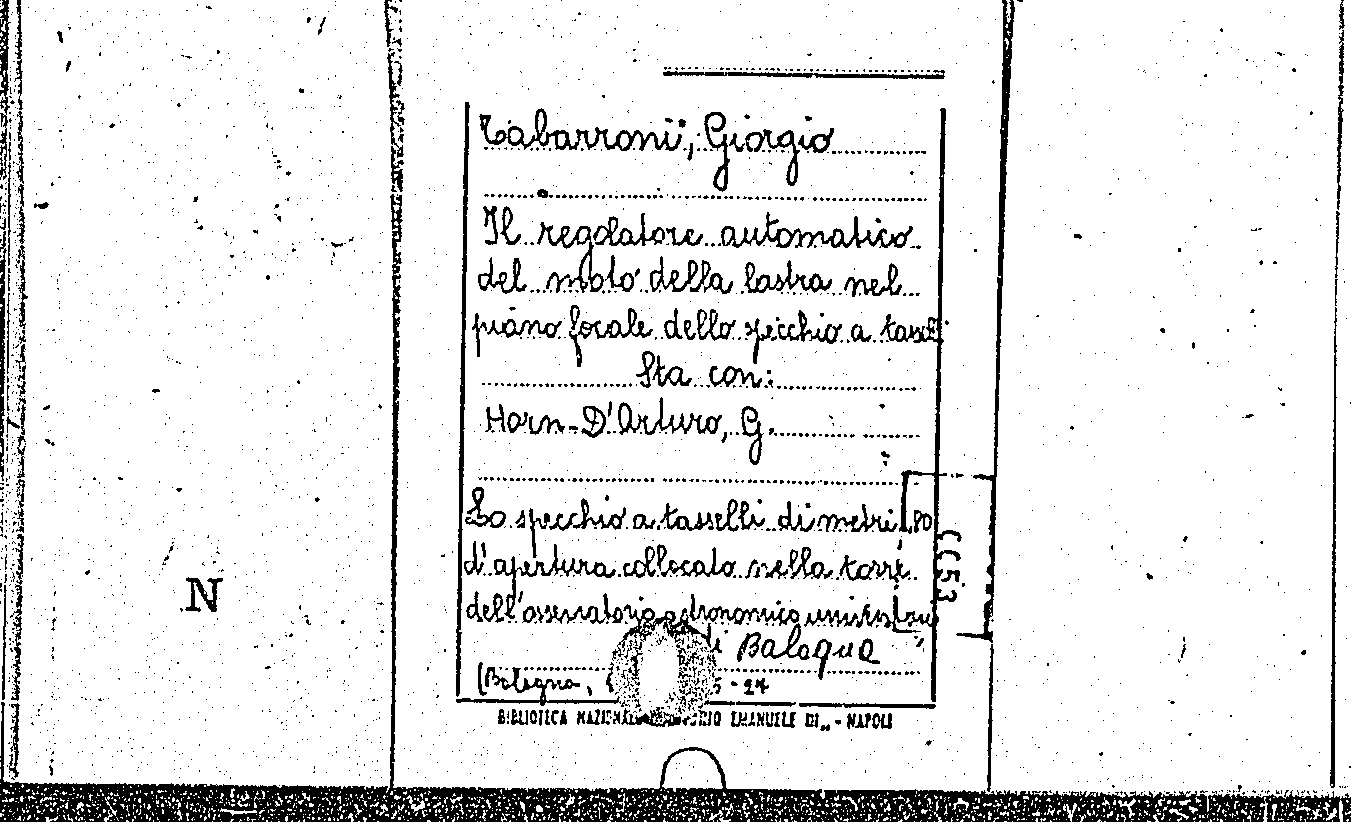 Tabarroni, Giorgio
Il regolatore automatico
del moto della lastra nel
piano focale dello specchio a tasselli
Sta con:
Horn-D'Arturo, G.
Lo specchio a tasselli di metri 1,80
d'apertura collocato nella torre
dell'osservatorio astronomico
di Bologna
(Bologna,
BIBLIOTECA NAZIONALE EMANUELE III - NAPOLI
N